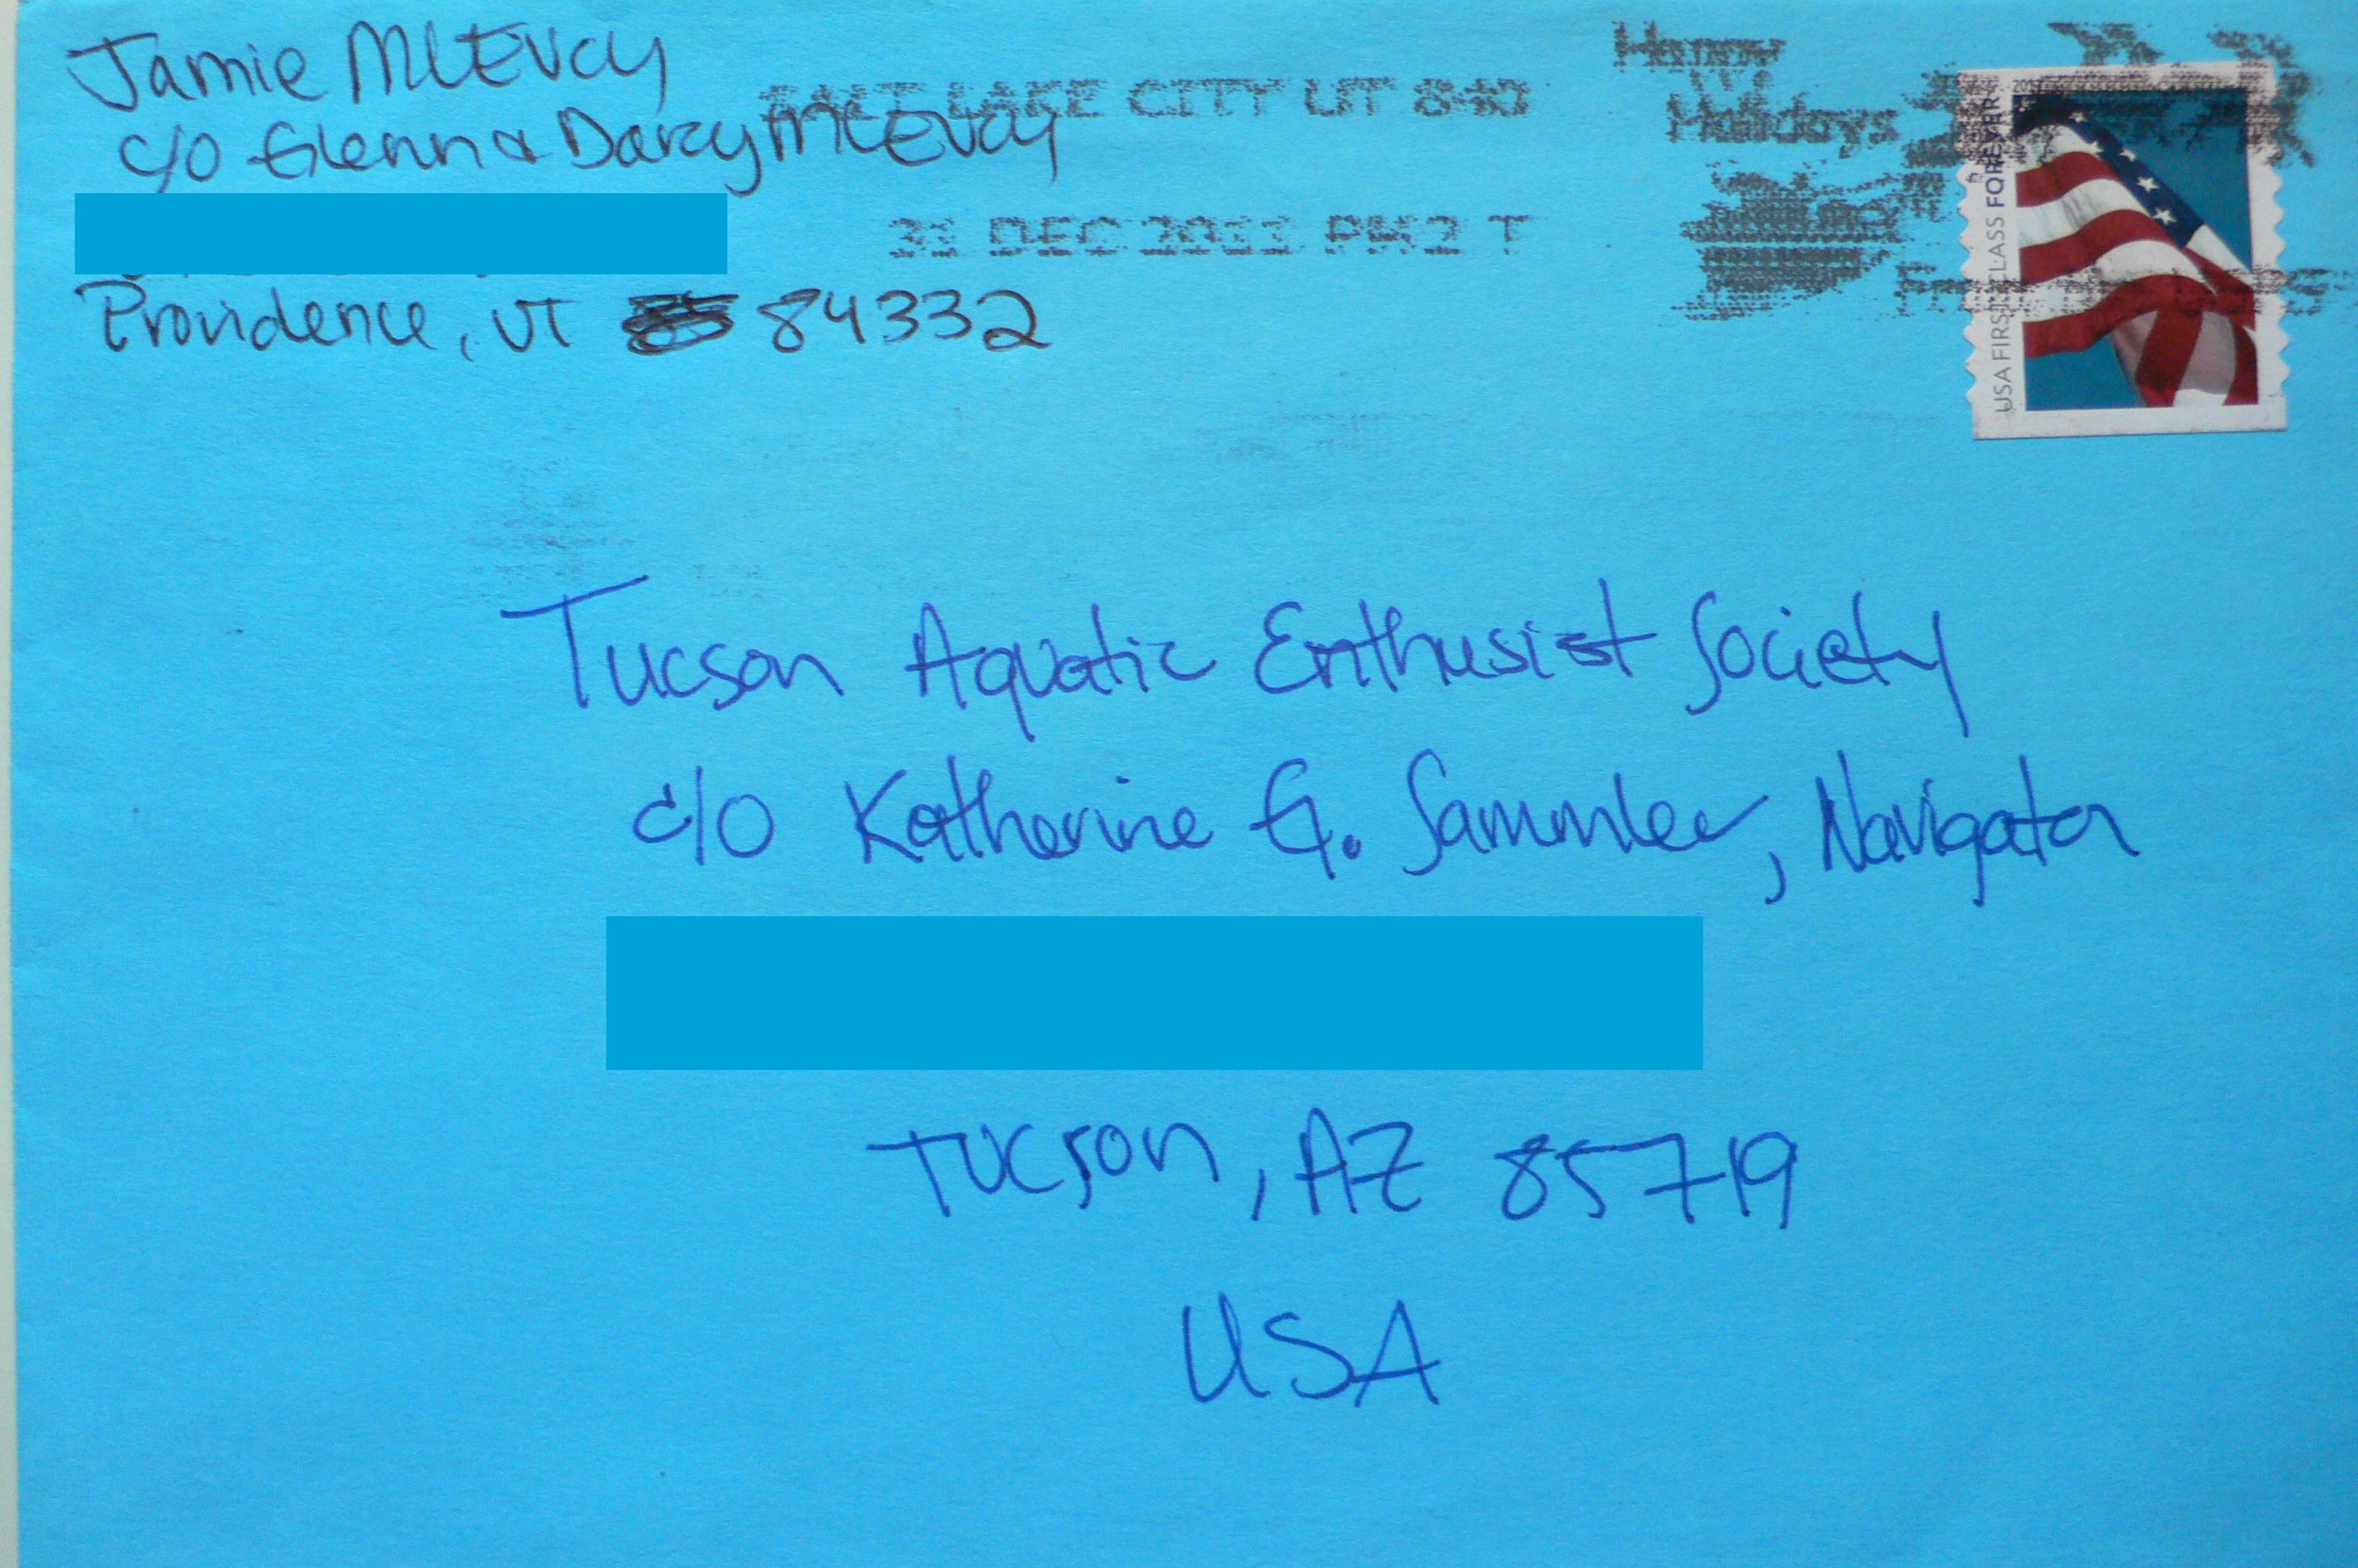 Jamie McEvoy
c/o Glenn & Darcy McEvoy
Providence, UT 84332
SALT LAKE CITY UT 840
31 DEC 2011 PM 2 T
Happy
Holidays
USA FIRST-CLASS FOREVER
Tucson Aquatic Enthusist Society
c/o Katherine G. Sammler, Navigator
Tucson, AZ 85719
USA